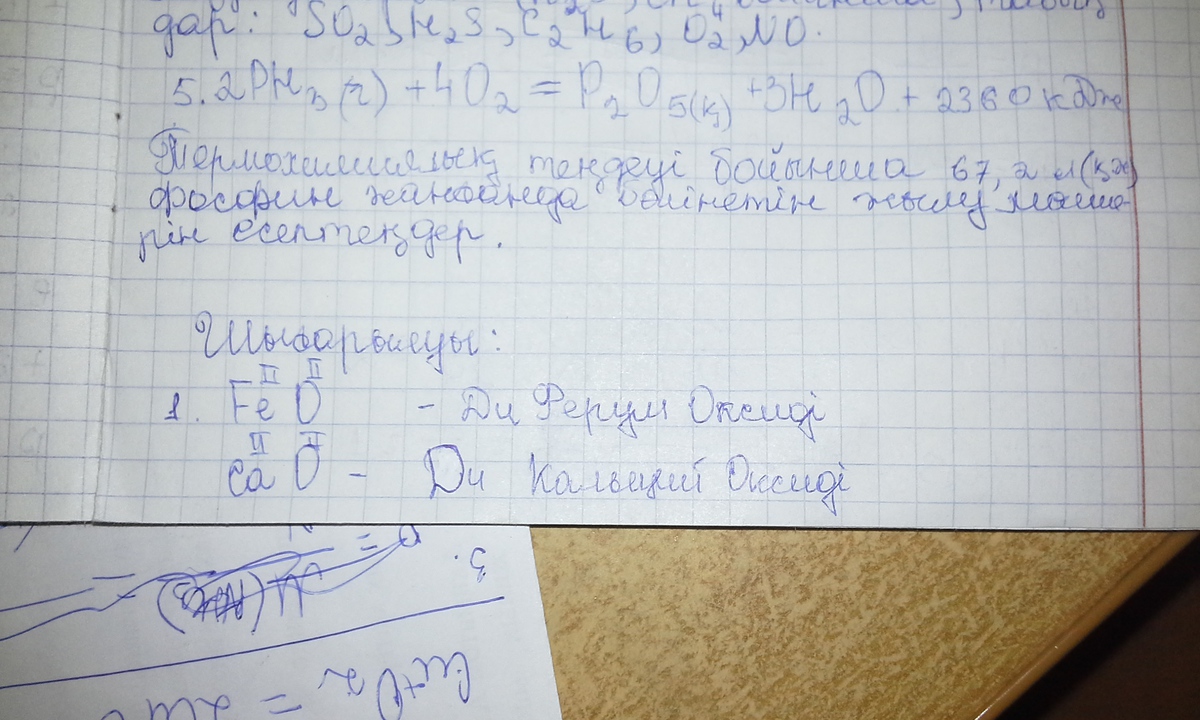 дар: SO₂, H₂S, C₂H₆, O₂, NO.
5. 2PH₃(г) + 4O₂ = P₂O₅(қ) + 3H₂O + 2360 кДж
Термохимиялық теңдеуі бойынша 67,2 л (қ.ж)
фосфин жанғанда бөлінетін жылу мөлше-
рін есептеңдер.
Шығарылуы:
II II
1. FeO - Ди Ферум Оксиді
II II
CaO - Ди Кальций Оксиді
3.
Cu+O₂ =